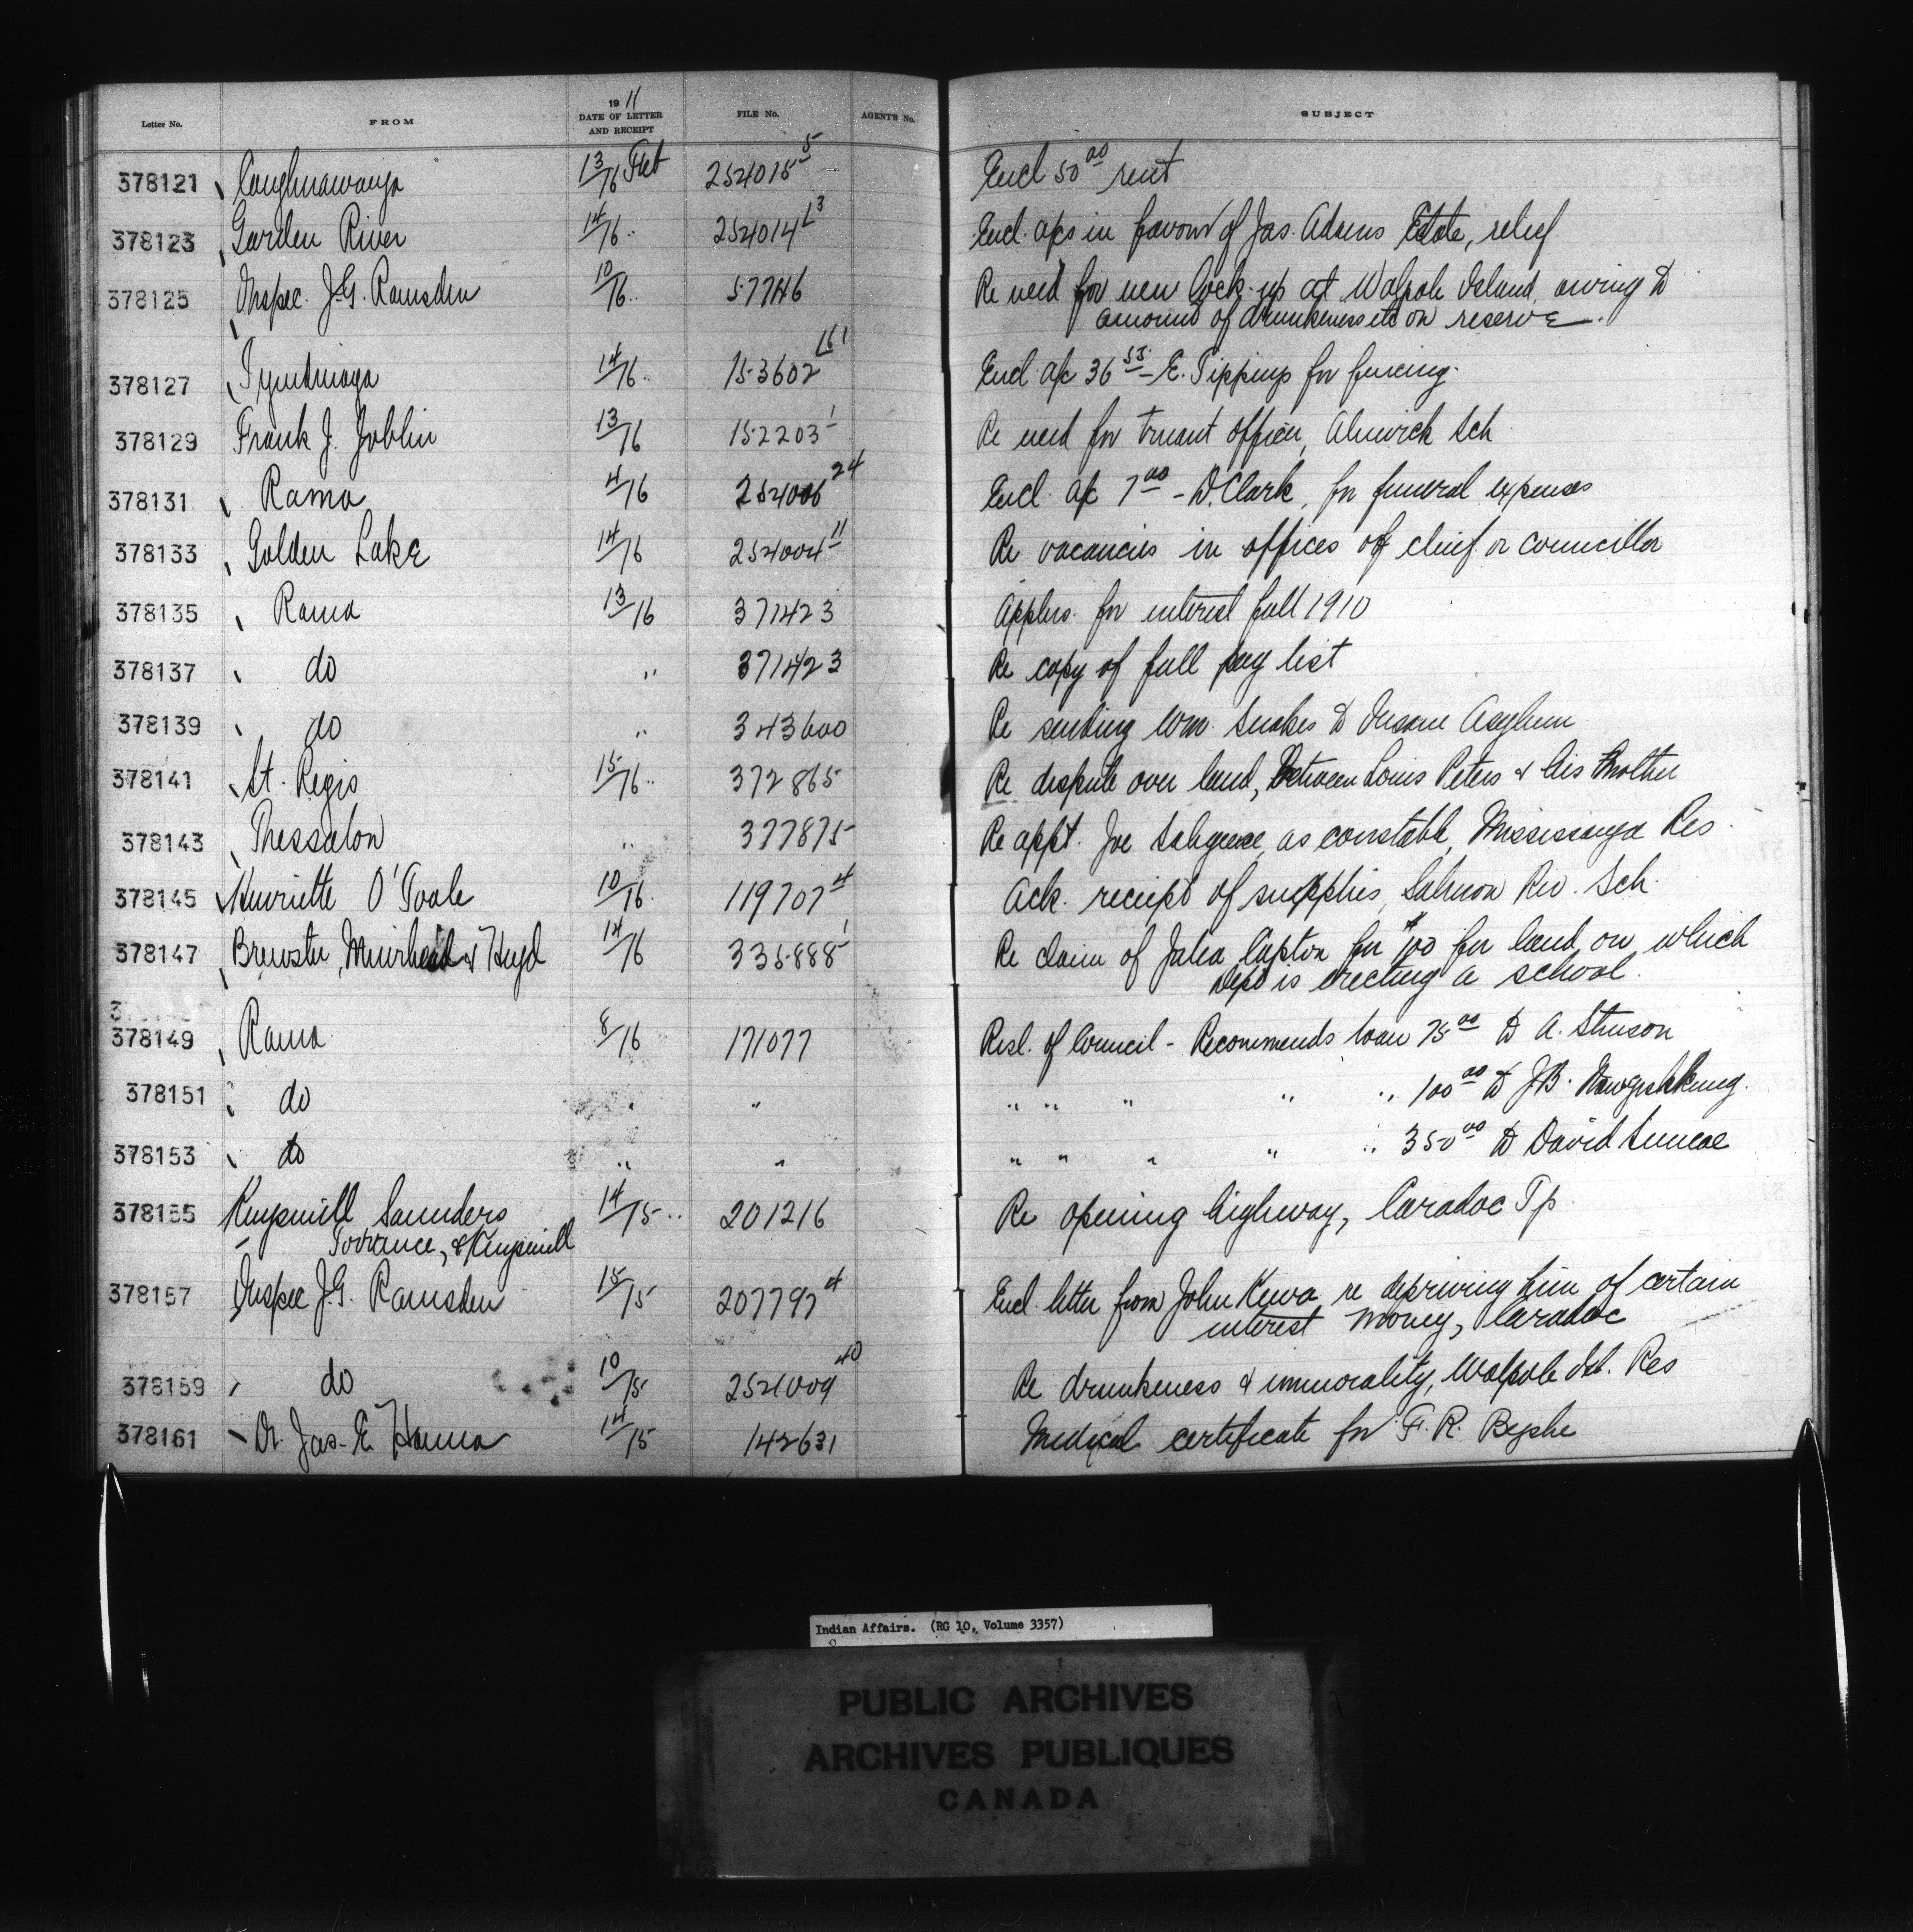 Letter No. FROM 1911 DATE OF LETTER AND RECEIPT FILE No. AGENT'S No. SUBJECT
378121 Caughnawauga 13/16 Feb 254015 5 Encl 50 00 rent
378123 Garden River 14/16 " 254014 L3 Encl. a/cs in favour of Jas. Adams Estate, relief
378125 Inspec. J.G. Ramsden 10/16 " 57746 Re need for new lock-up at Walpole Island, owing to
amount of drunkeness etc on reserve.
378127 Tyendinaga 14/16 " 153602 L61 Encl a/c 36 55 - E. Tippins for fencing.
378129 Frank J. Joblin 13/16 152203 1 Re need for truant officer, Alnwick Sch
378131 Rama 4/16 254006 24 Encl. a/c 7 00 - D. Clark, for funeral expenses
378133 Golden Lake 14/16 254004 11 Re vacancies in offices of chief or councillor
378135 Rama 13/16 371423 Applns. for interest fall 1910
378137 do " 371423 Re copy of fall pay list
378139 do " 343600 Re sending Wm. Snakes to Insane Asylum
378141 St. Regis 15/16 " 372865 Re dispute over land, between Louis Peters & his Mother
378143 Thessalon " 377875 Re appt. Joe as constable, Mississauga Res.
378145 Henriette O'Toole 10/16 119707 4 Ack. receipt of supplies, Salmon Riv. Sch.
378147 Brewster, Muirhead & Heyd 14/16 335888 1 Re claim of Julia for $100 for land on which
Dept is erecting a school.
378149 Rama 8/16 171077 Resl. of Council - Recommends loan 75 00 to A. Stinson
378151 do " " " " " " " 100 00 to J.B.
378153 do " " " " " " " 350 00 to David Simcoe
378155 Kingsmill Saunders 14/15 " 201216 Re opening highway, Caradoc Tp.
Torrance, & Kingsmill
378157 Inspec J.G. Ramsden 15/15 207797 4 Encl. letter from John Kewa re depriving him of certain
interest money, Caradoc
378159 do 10/15 254009 40 Re drunkeness & immorality, Walpole Isl. Res
378161 Dr. Jas. E. Hanna 14/15 142631 Medical certificate for F. R. Bysshe
Indian Affairs. (RG 10, Volume 3357)
PUBLIC ARCHIVES
ARCHIVES PUBLIQUES
CANADA